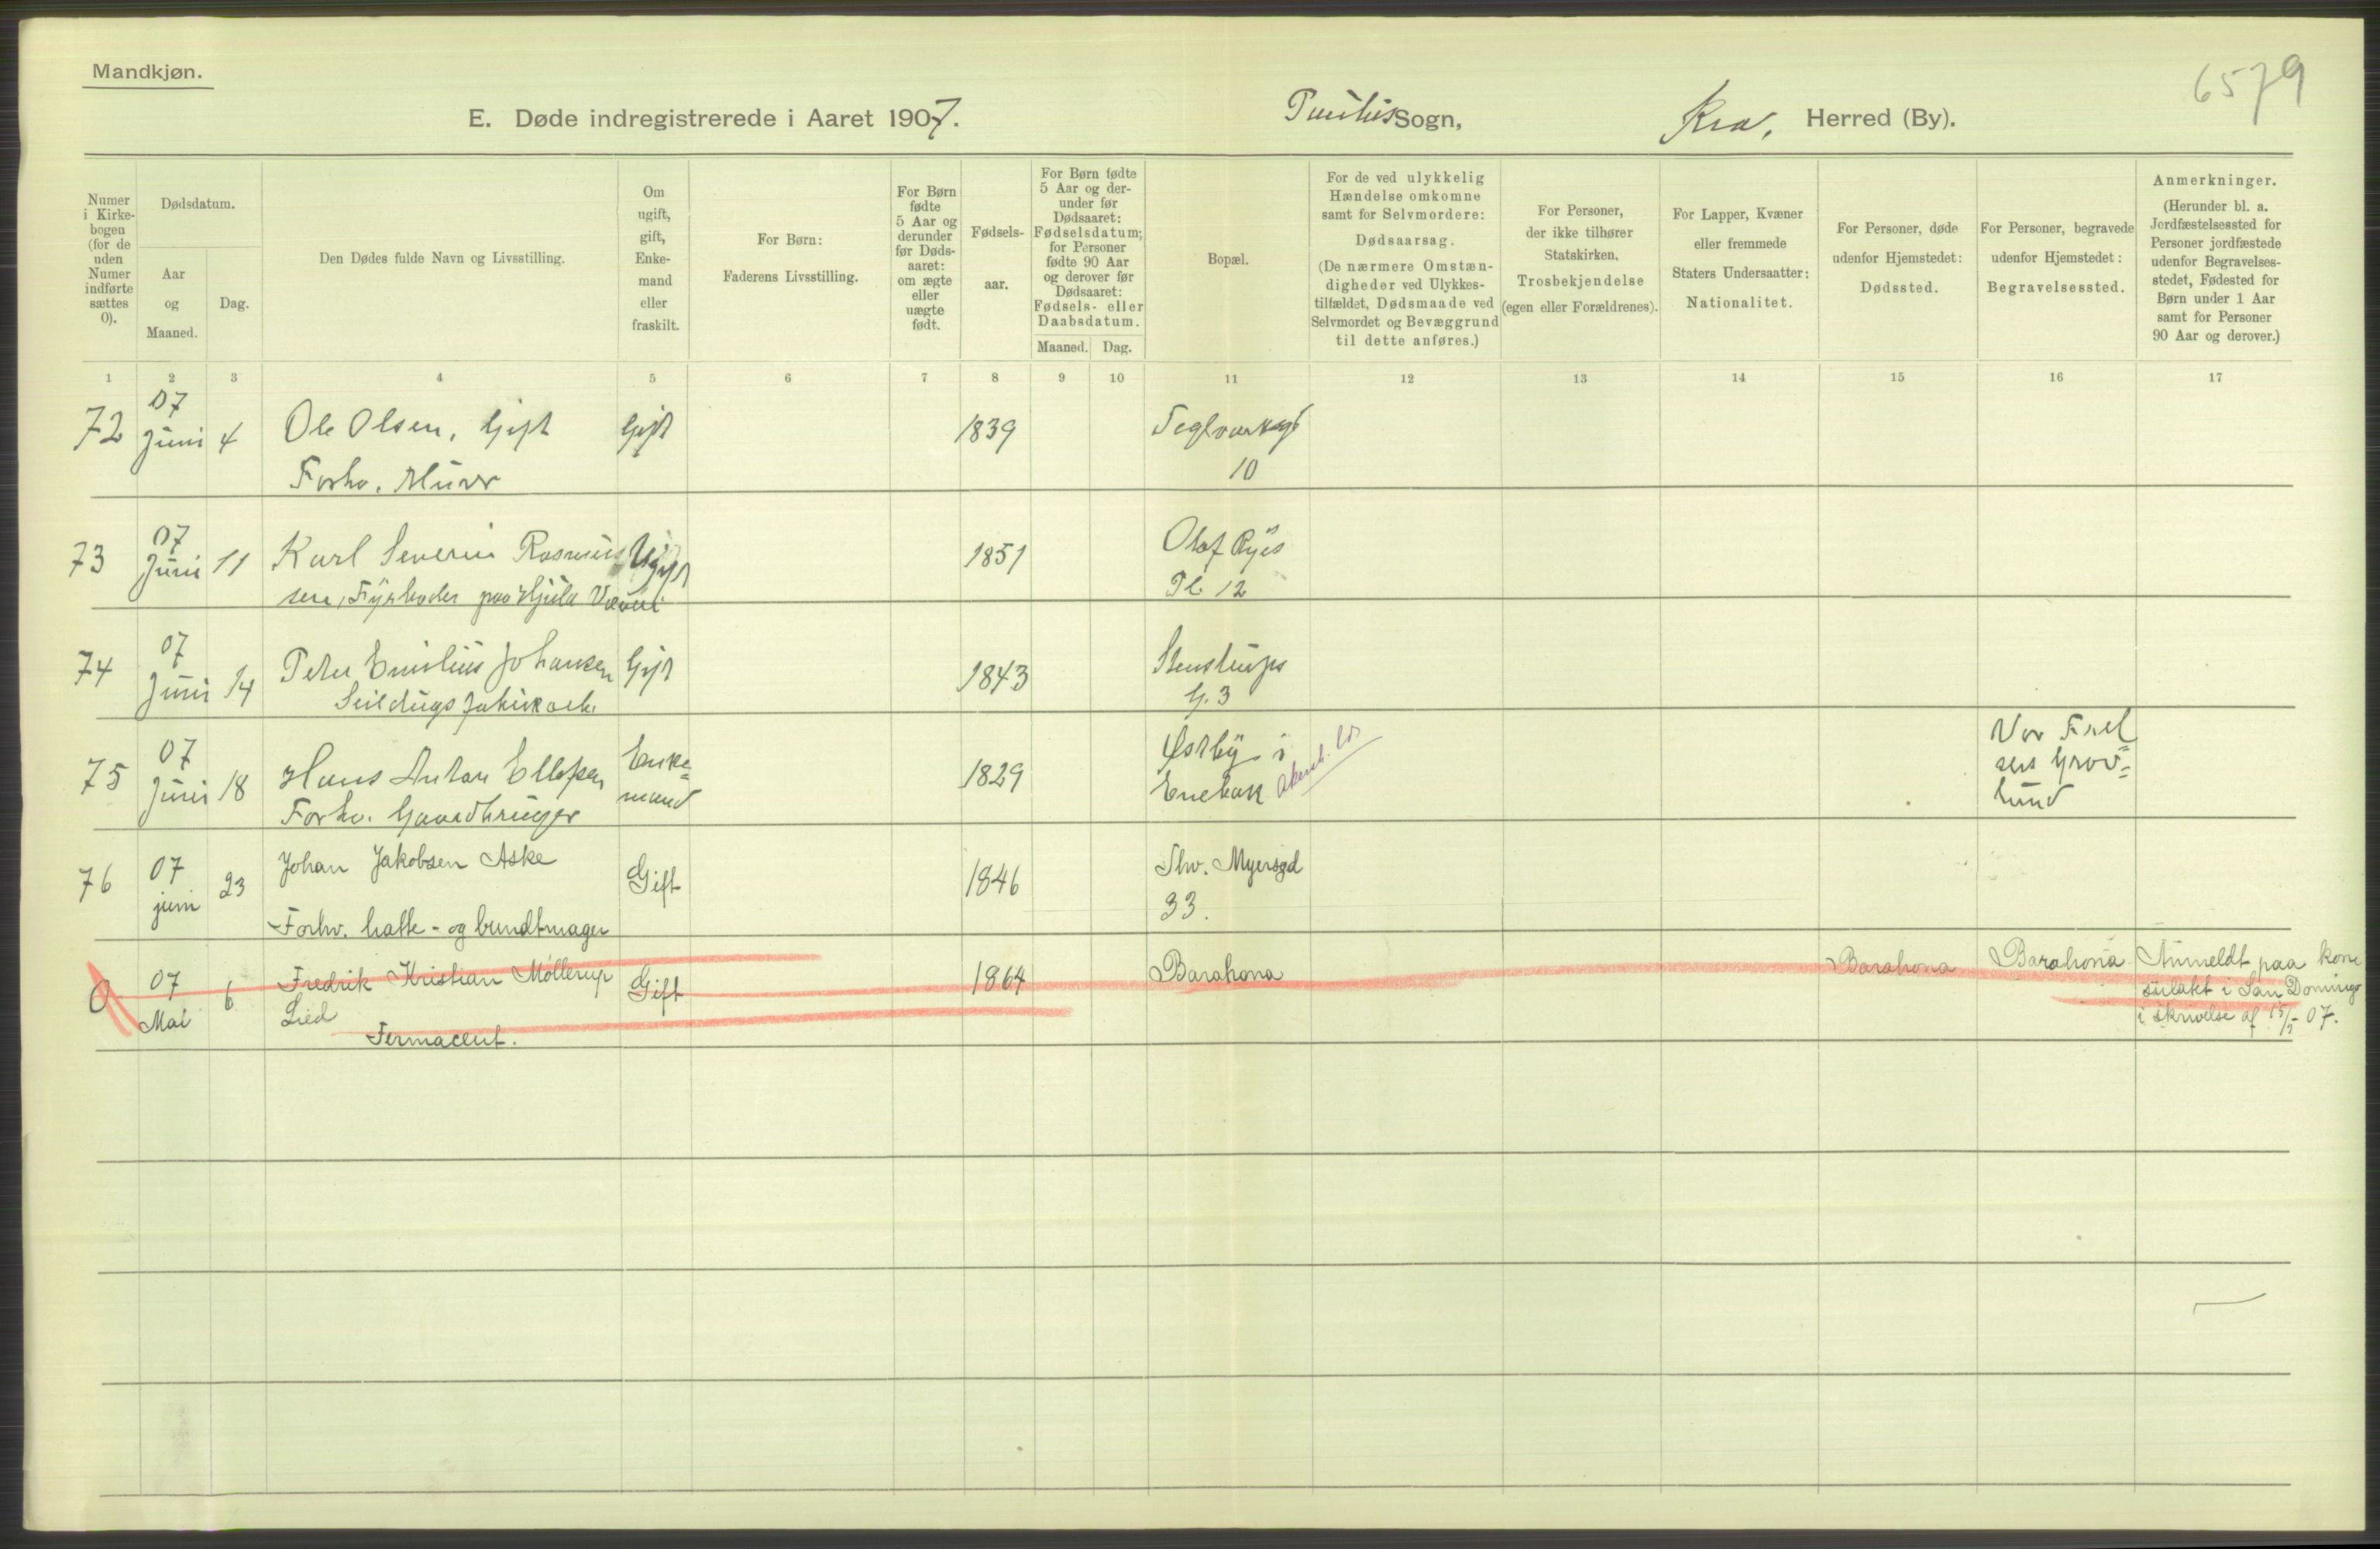 Mandkjøn.
6579
E. Døde indregistrerede i Aaret 1907. Paulus Sogn, Kra, Herred (By).
Numer i Kirkebogen (for de uden Numer indførte sættes 0).
Dødsdatum.
Aar og Maaned.
Dag.
Den Dødes fulde Navn og Livsstilling.
Om ugift, gift, Enkemand eller fraskilt.
For Børn: Faderens Livsstilling.
For Børn fødte 5 Aar og derunder før Dødsaaret: om ægte eller uægte født.
Fødselsaar.
For Børn fødte 5 Aar og derunder før Dødsaaret: Fødselsdatum; for Personer fødte 90 Aar og derover før Dødsaaret: Fødsels- eller Daabsdatum.
Maaned. Dag.
Bopæl.
For de ved ulykkelig Hændelse omkomne samt for Selvmordere: Dødsaarsag. (De nærmere Omstændigheder ved Ulykkestilfældet, Dødsmaade ved Selvmordet og Bevæggrund til dette anføres.)
For Personer, der ikke tilhører Statskirken, Trosbekjendelse (egen eller Forældrenes).
For Lapper, Kvæner eller fremmede Staters Undersaatter: Nationalitet.
For Personer, døde udenfor Hjemstedet: Dødssted.
For Personer, begravede udenfor Hjemstedet: Begravelsessted.
Anmerkninger. (Herunder bl. a. Jordfæstelsessted for Personer jordfæstede udenfor Begravelsesstedet, Fødested for Børn under 1 Aar samt for Personer 90 Aar og derover.)
1 2 3 4 5 6 7 8 9 10 11 12 13 14 15 16 17
72 07 Juni 4 Ole Olsen, Gift Gift 1839 Teglverksgt
Forhv. Murer 10
73 07 Juni 11 Karl Severin Rasmus Ugift 1851 Olaf Ryes
sen, Fyrbøder paa Hjula Væveri Pl. 12
74 07 Juni 14 Peter Emilius Johansen Gift 1843 Stenstrups
Seildugsfabrikarb. G. 3
75 07 Juni 18 Hans Anton Ellefsen Enke= mand 1829 Østby i Enebak Akersh. Vor Frel
sers Grav=
lund
Forhv. Gaardbruger
76 07 juni 23 Johan Jakobsen Aske Gift 1846 Thv. Myersgd
33.
Forhv. hatte- og bundtmager
0 07 Mai 6 Fredrik Kristian Møllerup Gift 1864 Barahona Barahona Barahona Anmeldt paa kon=
Lied sulatet i San Domingo
Farmaceut. i skrivelse af 15/5 07.